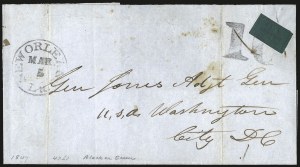 NEW ORLEANS
MAR
5
LA.
10
Genl Jones Adjt Gen
U.S.A Washington
City D.C